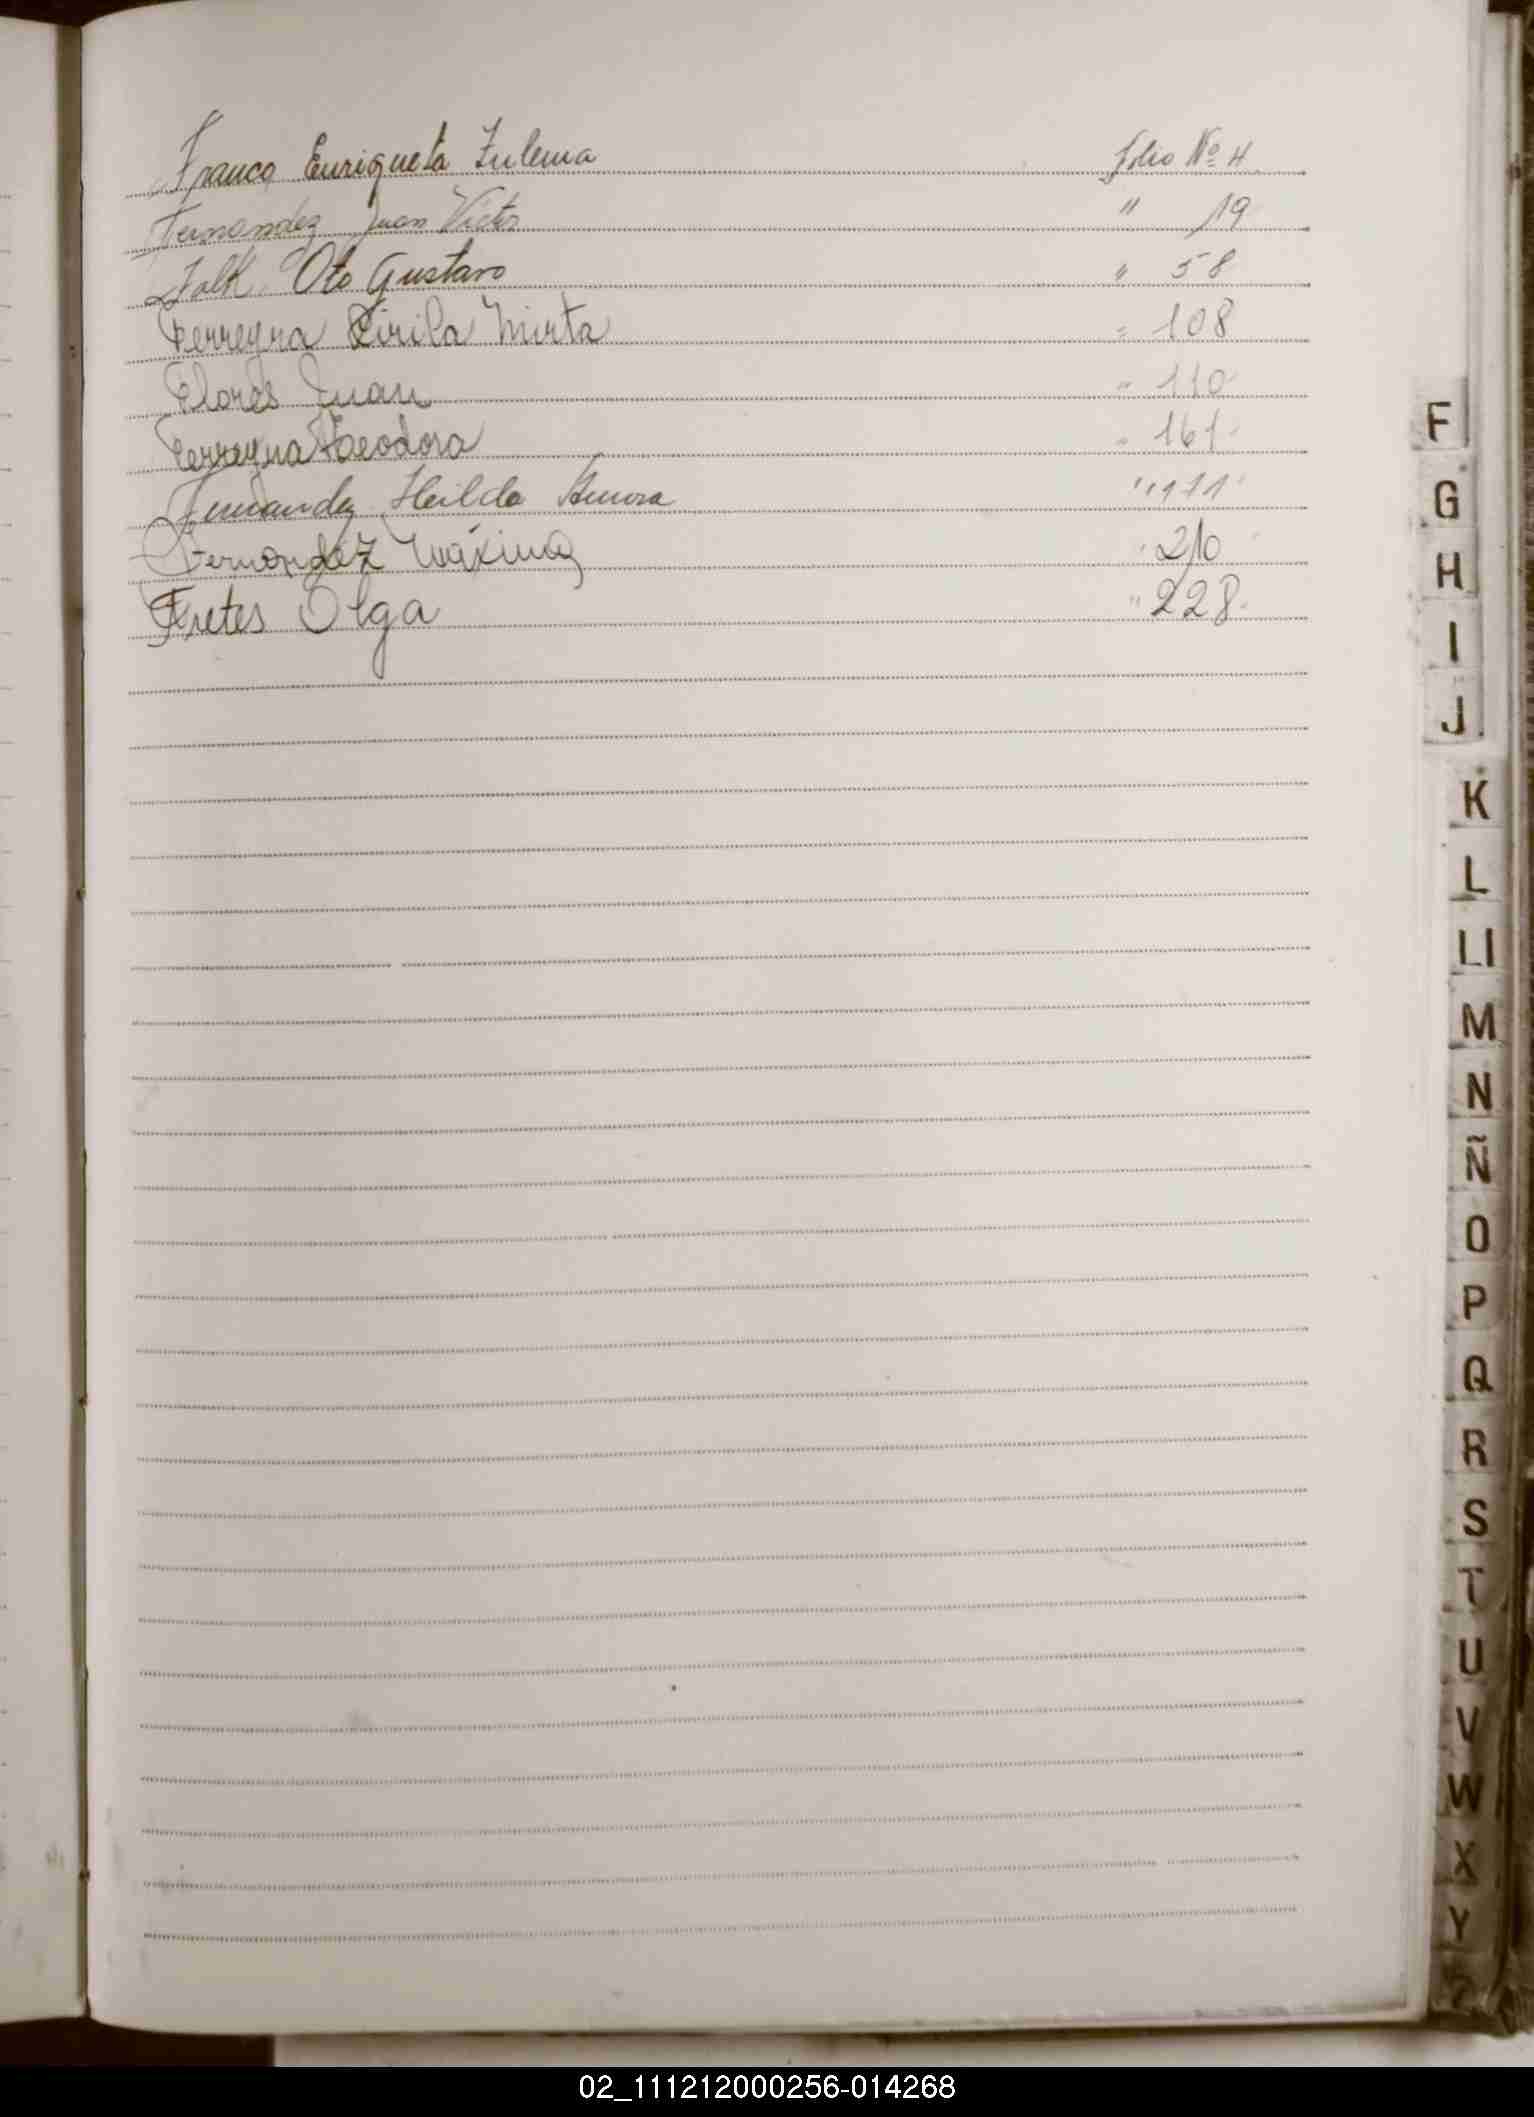 Franco Enriqueta Zulema folio Nº 4
Fernandez Juan Victor " 19
Falk Oto Gustavo " 58
Ferreyra Sirila Mirta " 108
Flores Juan " 110
Ferreyra Teodora " 161
Fernandez Hilda Aurora " 171
Fernández Máxima " 210
Fretes Olga " 228
F
G
H
I
J
K
L
Ll
M
N
Ñ
O
P
Q
R
S
T
U
V
W
X
Y
02_111212000256-014268